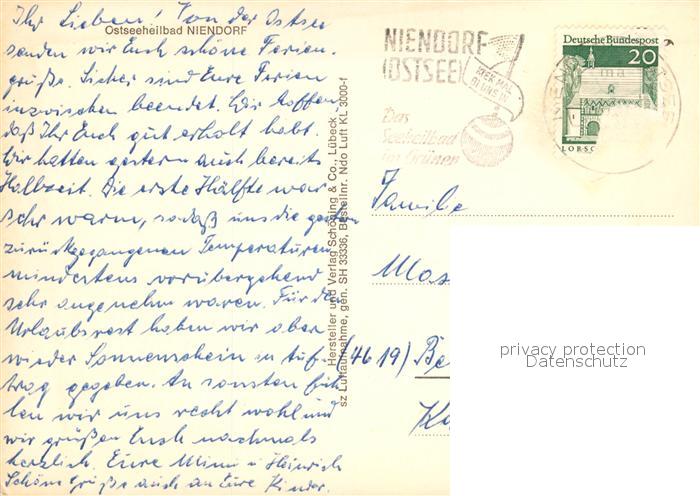 Ihr Lieben! Von der Ostsee
Ostseeheilbad NIENDORF
senden wir Euch schöne Ferien-
grüße. Sicher sind Eure Ferien
inzwischen beendet. Wir hoffen,
daß Ihr Euch gut erholt habt.
Wir hatten gestern auch bereits
Halbzeit. Die erste Hälfte war
sehr warm, sodaß uns die gestern
zurückgegangenen Temperaturen
mindestens vorübergehend
sehr angenehm waren. Für den
Urlaubsrest haben wir aber
wieder Sonnenschein in Auf-
trag gegeben. Ansonsten füh-
len wir uns recht wohl und
wir grüßen Euch nochmals
herzlich. Eure Minni u. Heinrich
Schöne Grüße auch an Eure Kinder.
Hersteller und Verlag Schöning & Co., Lübeck
sz Luftaufnahme, gen. SH 33336, Bestellnr. Ndo Luft KL 3000-f
NIENDORF
(OSTSEE)
Das
Seeheilbad
im Grünen
Deutsche Bundespost
20
LORSC
Familie
Mos
(4619) Be
Ka
privacy protection
Datenschutz